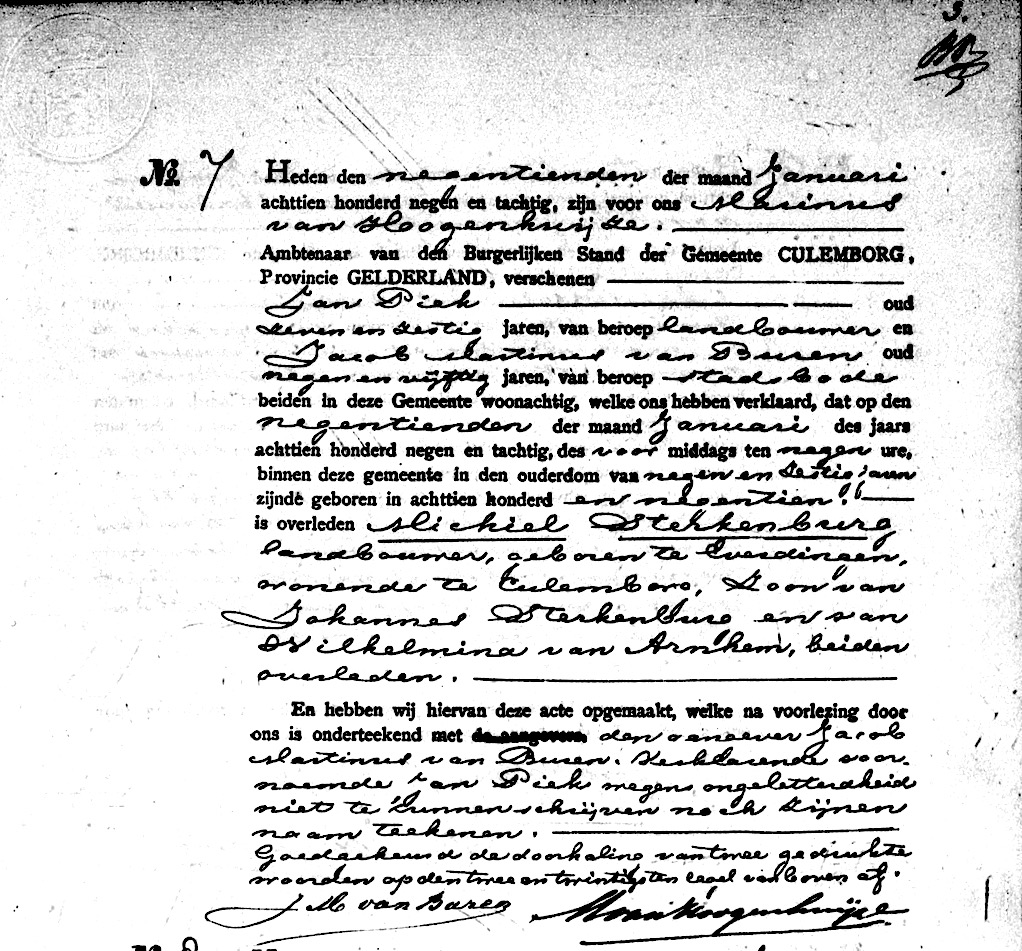 3.
No. 7 Heden den negentienden der maand Januari
achttien honderd negen en tachtig, zijn voor ons Marinus
van Hoogenhuijze.
Ambtenaar van den Burgerlijken Stand der Gemeente CULEMBORG,
Provincie GELDERLAND, verschenen
Jan Piek oud
zeven en zestig jaren, van beroep landbouwer en
Jacob Martinus van Buren oud
negen en vijftig jaren, van beroep stadsbode
beiden in deze Gemeente woonachtig, welke ons hebben verklaard, dat op den
negentienden der maand Januari des jaars
achttien honderd negen en tachtig, des voor middags ten negen ure,
binnen deze gemeente in den ouderdom van negen en zestig jaren
zijnde geboren in achttien honderd en negentien.
is overleden Michiel Sterkenburg
landbouwer, geboren te Everdingen,
wonende te Culemborg, Zoon van
Johannes Sterkenburg en van
Wilhelmina van Arnhem, beiden
overleden.
En hebben wij hiervan deze acte opgemaakt, welke na voorlezing door
ons is onderteekend met de aangevers, den aangever Jacob
Martinus van Buren. Verklarende voor-
noemde Jan Piek wegens ongeletterdheid
niet te kunnen schrijven noch zijnen
naam teekenen.
Goedgekeurd de doorhaling van twee gedrukte
woorden op den twee en twintigsten regel van boven af.
J M van Buren MvanHoogenhuijze